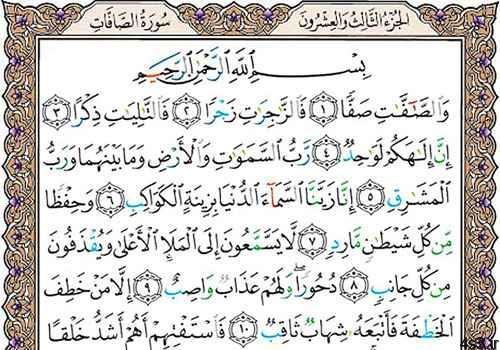 سورة الصافات الجزء الثالث والعشرون
بِسْمِ ٱللَّهِ ٱلرَّحْمَٰنِ ٱلرَّحِيمِ
وَٱلصَّٰٓفَّٰتِ صَفًّا ١ فَٱلزَّٰجِرَٰتِ زَجْرًا ٢ فَٱلتَّٰلِيَٰتِ ذِكْرًا ٣
إِنَّ إِلَٰهَكُمْ لَوَٰحِدٌ ٤ رَّبُّ ٱلسَّمَٰوَٰتِ وَٱلْأَرْضِ وَمَا بَيْنَهُمَا وَرَبُّ
ٱلْمَشَٰرِقِ ٥ إِنَّا زَيَّنَّا ٱلسَّمَآءَ ٱلدُّنْيَا بِزِينَةٍ ٱلْكَوَاكِبِ ٦ وَحِفْظًا
مِّن كُلِّ شَيْطَٰنٍ مَّارِدٍ ٧ لَّا يَسَّمَّعُونَ إِلَى ٱلْمَلَإِ ٱلْأَعْلَىٰ وَيُقْذَفُونَ
مِن كُلِّ جَانِبٍ ٨ دُحُورًا ۖ وَلَهُمْ عَذَابٌ وَاصِبٌ ٩ إِلَّا مَنْ خَطِفَ
ٱلْخَطْفَةَ فَأَتْبَعَهُۥ شِهَابٌ ثَاقِبٌ ١٠ فَٱسْتَفْتِهِمْ أَهُمْ أَشَدُّ خَلْقًا